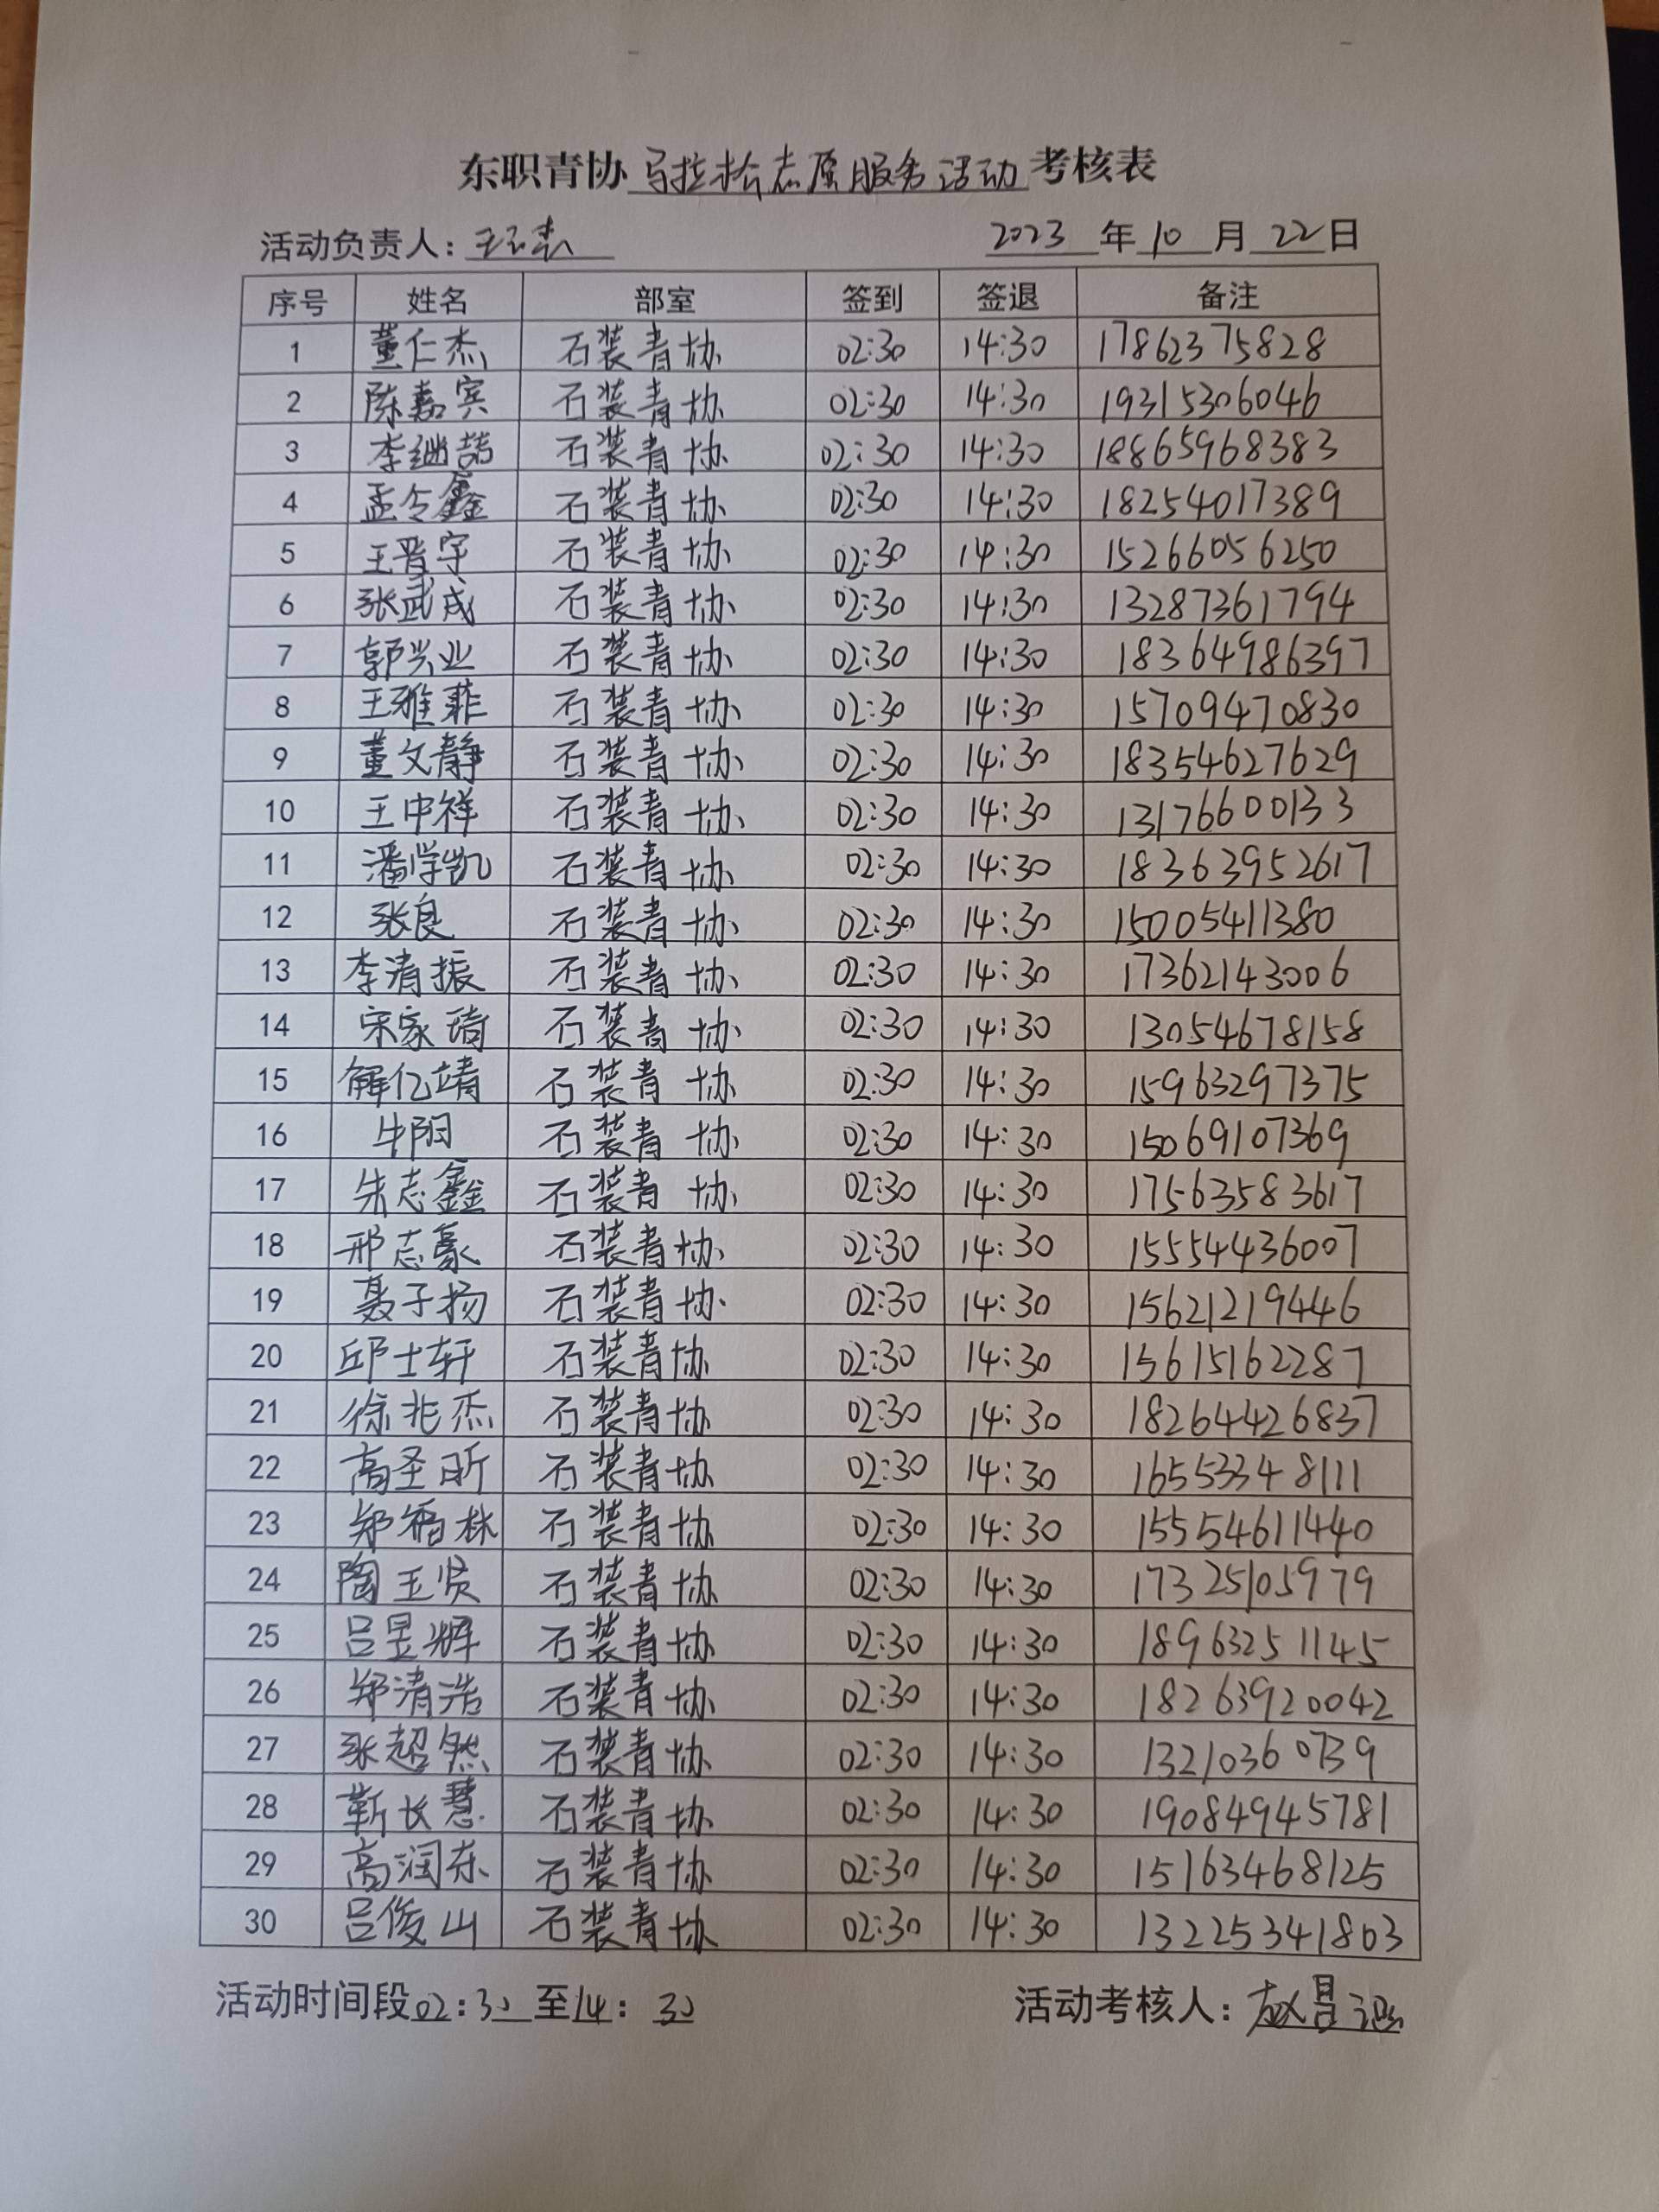 东职青协马拉松志愿服务活动考核表
活动负责人: 2023年10月22日
序号 姓名 部室 签到 签退 备注
1 董仁杰 石装青协 02:30 14:30 17862375828
2 陈嘉宾 石装青协 02:30 14:30 19315306046
3 李继喆 石装青协 02:30 14:30 18865968383
4 孟令鑫 石装青协 02:30 14:30 18254017389
5 王晋宇 石装青协 02:30 14:30 15266056250
6 张武成 石装青协 02:30 14:30 13287361794
7 郭兴业 石装青协 02:30 14:30 18364986397
8 王雅菲 石装青协 02:30 14:30 15709470830
9 董文静 石装青协 02:30 14:30 18354627629
10 王中祥 石装青协 02:30 14:30 13176600133
11 潘学凯 石装青协 02:30 14:30 18363952617
12 张良 石装青协 02:30 14:30 15005411380
13 李清振 石装青协 02:30 14:30 17362143006
14 宋家琦 石装青协 02:30 14:30 13054678158
15 解亿靖 石装青协 02:30 14:30 15963297375
16 牛阳 石装青协 02:30 14:30 15069107369
17 朱志鑫 石装青协 02:30 14:30 17563583617
18 邢志豪 石装青协 02:30 14:30 15554436007
19 聂子扬 石装青协 02:30 14:30 15621219446
20 邱士轩 石装青协 02:30 14:30 15615162287
21 徐兆杰 石装青协 02:30 14:30 18264426837
22 高圣昕 石装青协 02:30 14:30 16553348111
23 郑福林 石装青协 02:30 14:30 15554611440
24 陶玉贤 石装青协 02:30 14:30 17325105979
25 吕昱辉 石装青协 02:30 14:30 18963251145
26 郑清浩 石装青协 02:30 14:30 18263920042
27 张超然 石装青协 02:30 14:30 13210360739
28 靳长慧 石装青协 02:30 14:30 19084945781
29 高润东 石装青协 02:30 14:30 15163468125
30 吕俊山 石装青协 02:30 14:30 13225341803
活动时间段02:30至14:30 活动考核人:赵昌涵